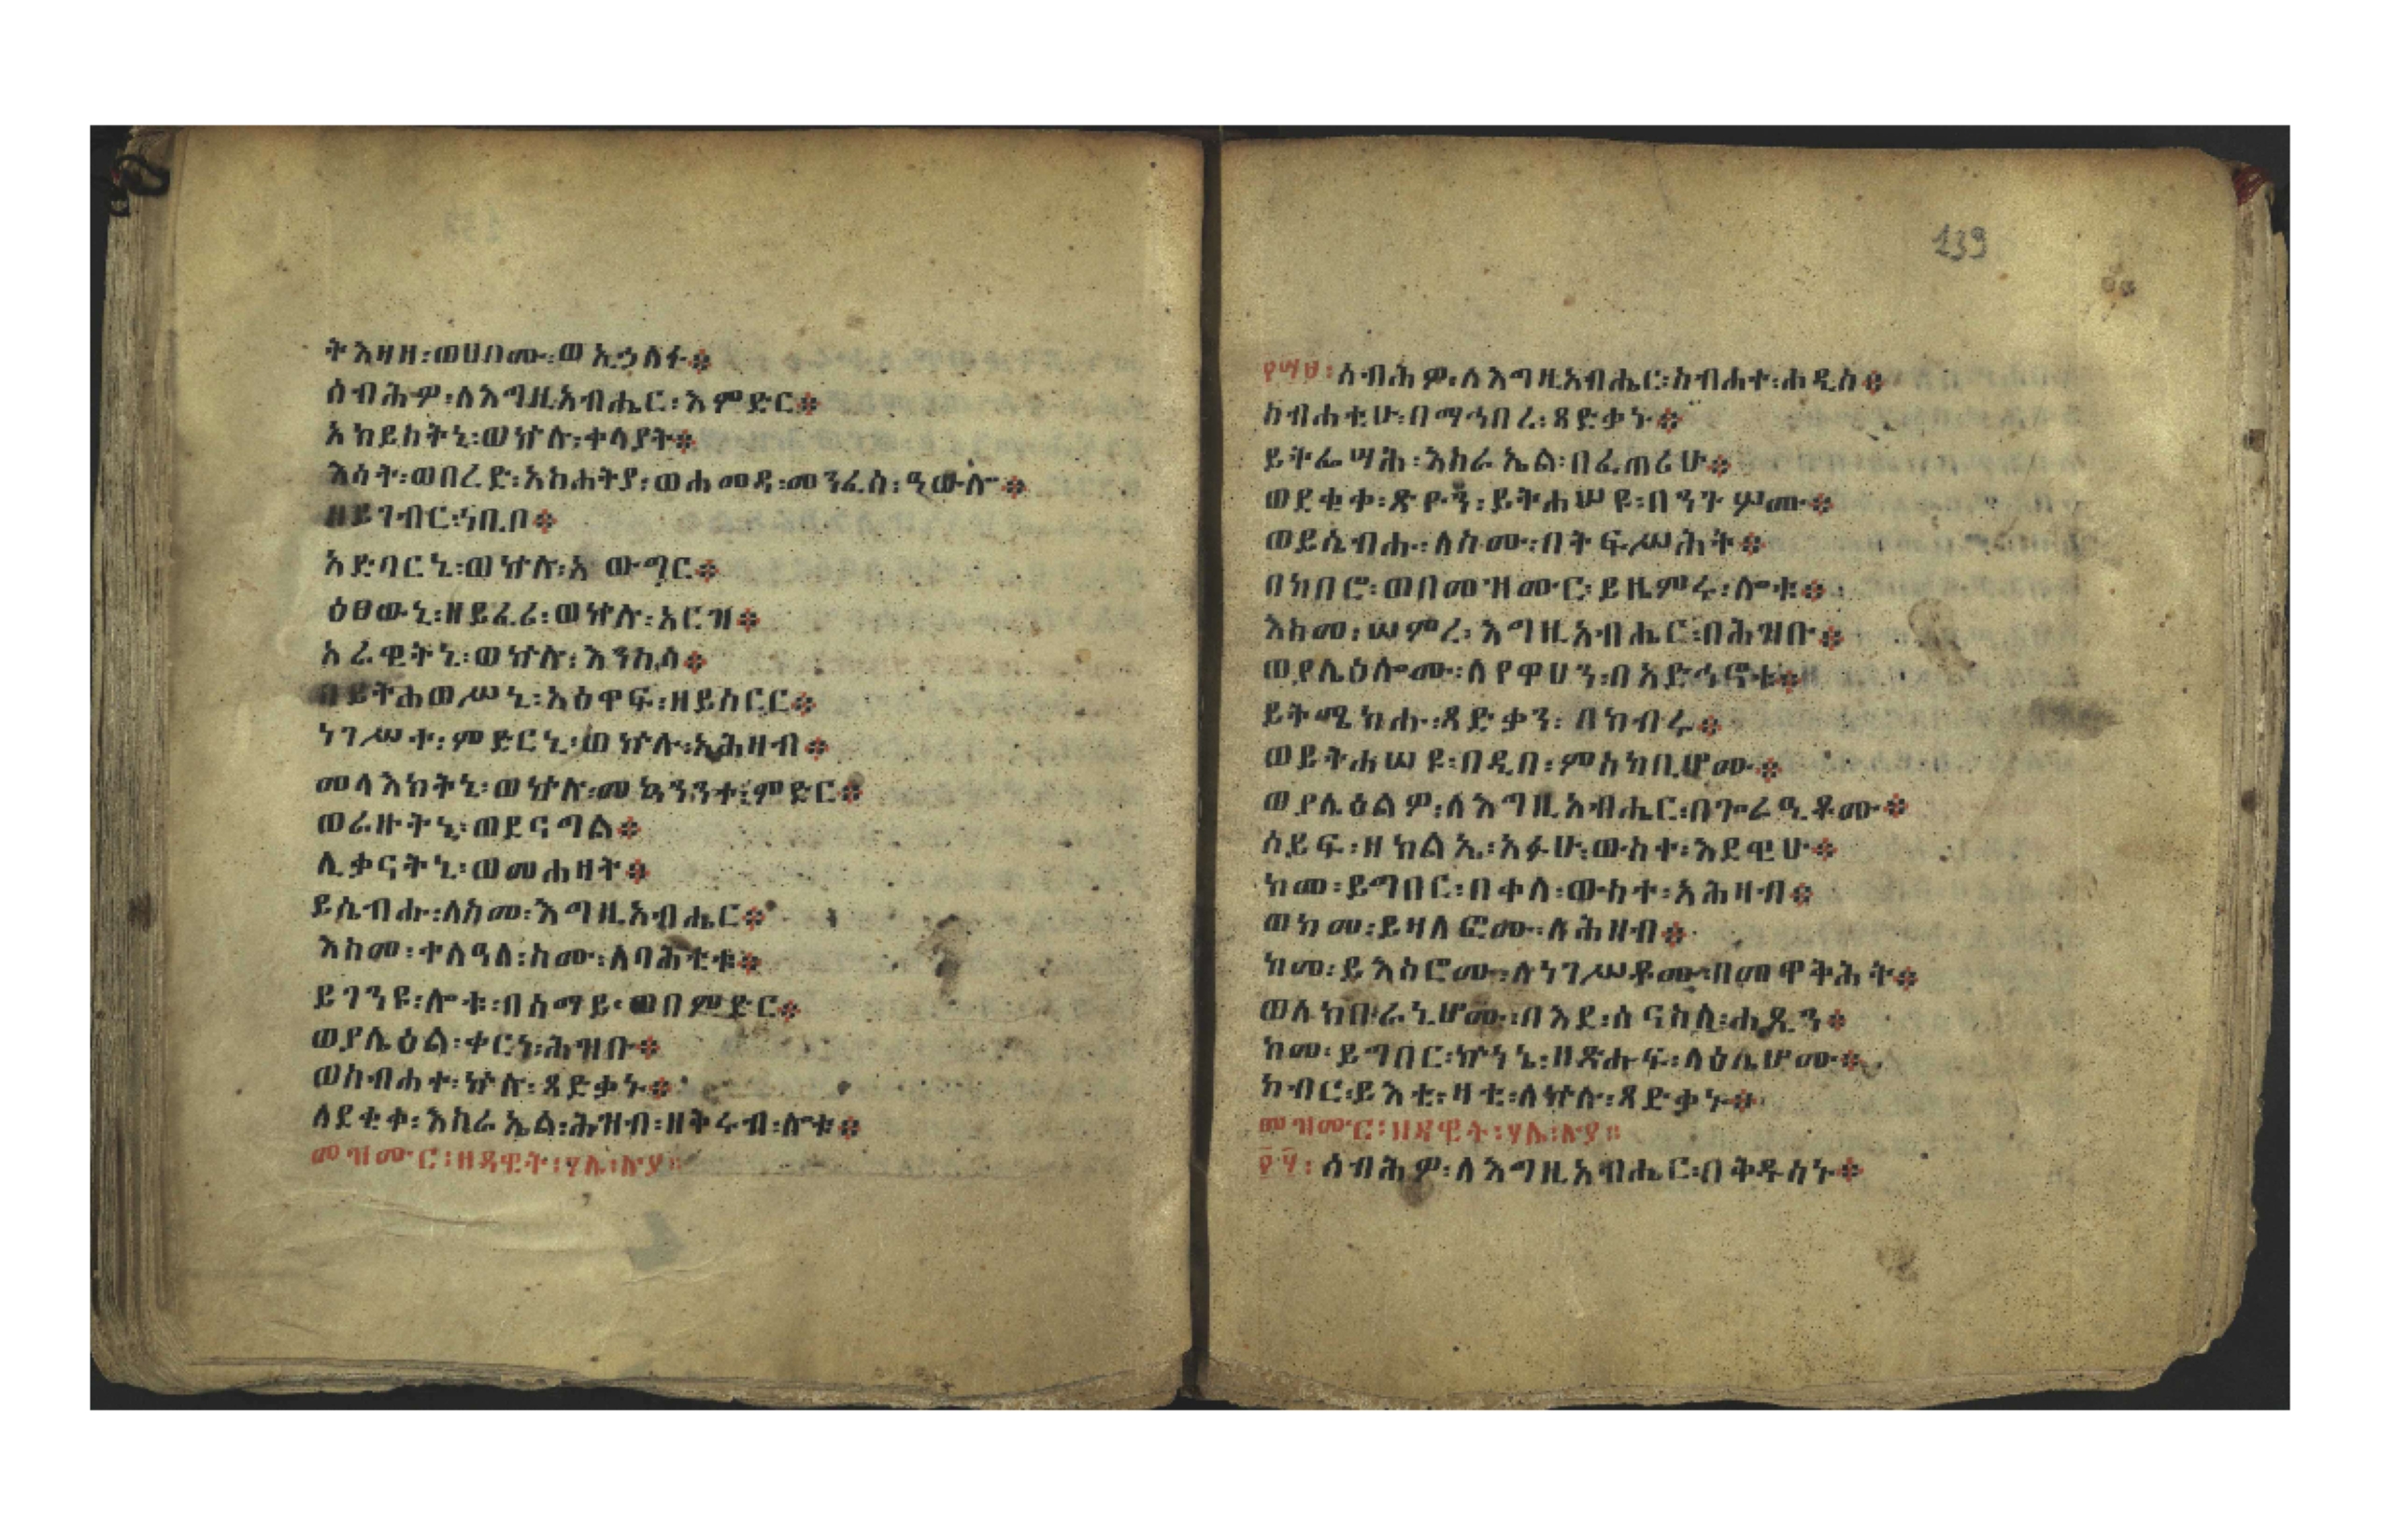 ትእዛዘ፡ወሀቦሙ፡ወኢኃለፉ፨
ሰብሕዎ፡ለእግዚአብሔር፡እምድር፨
አከይስትኒ፡ወኵሉ፡ቀላያት፨
እሳት፡ወበረድ፡አስሐትያ፡ወሐመዳ፡መንፈስ፡ዓውሎ፨
ዘይገብር፡ነቢቦ፨
አድባርኒ፡ወኵሉ፡አውግር፨
ዕፀውኒ፡ዘይፈሪ፡ወኵሉ፡አርዝ፨
አራዊትኒ፡ወኵሉ፡እንስሳ፨
በይትሐወሥኒ፡አዕዋፍ፡ዘይሰርር፨
ነገሥተ፡ምድርኒ፡ወኵሉ፡አሕዛብ፨
መላእክትኒ፡ወኵሉ፡መኳንንተ፡ምድር፨
ወራዙትኒ፡ወደናግል፨
ሊቃናትኒ፡ወመሐዛት፨
ይሴብሑ፡ለስመ፡እግዚአብሔር፨
እስመ፡ተለዓለ፡ስሙ፡ለባሕቲቱ፨
ይገንዩ፡ሎቱ፡በሰማይ፡ወበምድር፨
ወያሌዕል፡ቀርነ፡ሕዝቡ፨
ወስብሐተ፡ኵሉ፡ጻድቃኑ፨
ለደቂቀ፡እስራኤል፡ሕዝብ፡ዘቅሩብ፡ሎቱ፨
መዝሙር፡ዘዳዊት፡ሃሌ፡ሉያ።
139
፻፵፱፡ሰብሕዎ፡ለእግዚአብሔር፡ስብሐተ፡ሐዲሰ፨
ስብሐቲሁ፡በማኅበረ፡ጻድቃኑ፨
ይትፌሣሕ፡እስራኤል፡በፈጠሪሁ፨
ወደቂቀ፡ጽዮን፡ይትሐሠዩ፡በንጉሦሙ፨
ወይሴብሑ፡ለስሙ፡በትፍሥሕት፨
በከበሮ፡ወበመዝሙር፡ይዜምሩ፡ሎቱ፨
እስመ፡ሠምረ፡እግዚአብሔር፡በሕዝቡ፨
ወያሌዕሎሙ፡ለየዋሀን፡በአድኅኖቱ፨
ይትሜክሑ፡ጻድቃን፡በክብሩ፨
ወይትሐሠዩ፡በዲበ፡ምስካቢሆሙ፨
ወያሌዕልዎ፡ለእግዚአብሔር፡በጐራዒቶሙ፨
ሰይፍ፡ዘክልኤ፡አፉሁ፡ውስተ፡እደዊሁ፨
ከመ፡ይግበር፡በቀለ፡ውስተ፡አሕዛብ፨
ወከመ፡ይዛለፎሙ፡ለሕዘብ፨
ከመ፡ይእስሮሙ፡ለነገሥቶሙ፡በመዋትሕት፨
ወለክቡራኒሆሙ፡በእደ፡ሰናስለ፡ሐጺን፨
ከመ፡ይግበር፡ኵነኔ፡ዘጽሑፍ፡ላዕሌሆሙ፨
ክብር፡ይእቲ፡ዛቲ፡ለኵሉ፡ጻድቃኑ፨
መዝሙር፡ዘዳዊት፡ሃሌ፡ሉያ።
፻፶፡ሰብሕዎ፡ለእግዚአብሔር፡በቅዱሳኑ፨